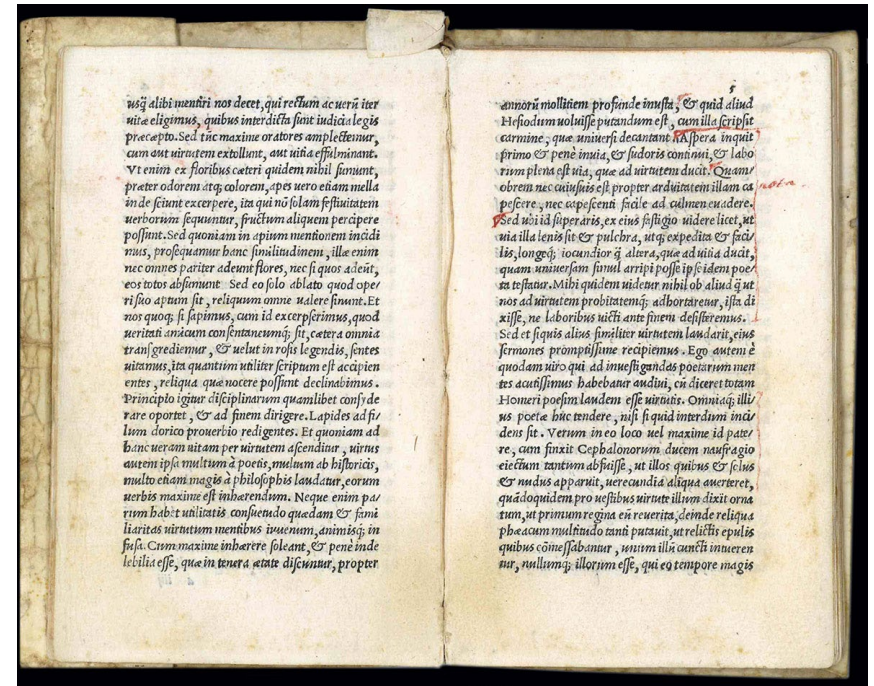 usq̃ alibi mentiri nos decet, qui rectum ac verũ iter
vitæ eligimus, quibus interdicta sunt iudicia legis
præcæpto. Sed tũc maxime oratores amplectemur,
cum aut virtutem extollunt, aut vitia effulminant.
Vt enim ex floribus cæteri quidem nihil sumunt,
præter odorem atq; colorem, apes vero etiam mella
inde sciunt excerpere, ita qui nõ solam festivitatem
verborum sequuntur, fructum aliquem percipere
possunt. Sed quoniam in apium mentionem incidi
mus, prosequamur hanc similitudinem, illæ enim
nec omnes pariter adeunt flores, nec si quos adeũt,
eos totos absumunt Sed eo solo ablato quod ope/
ri suo aptum sit, reliquum omne valere sinunt. Et
nos quoq; si sapimus, cum id excerpserimus, quod
veritati amicum consentaneumq; sit, cætera omnia
transgrediemur, & velut in rosis legendis, sentes
vitamus, ita quantum utiliter scriptum est accipien
entes, reliqua quæ nocere possunt declinabimus.
Principio igitur disciplinarum quamlibet consyde
rare oportet, & ad finem dirigere. Lapides ad fi/
lum dorico proverbio redigentes. Et quoniam ad
hanc veram vitam per virtutem ascenditur, virtus
autem ipsa multum à poetis, multum ab historicis,
multo etiam magis à philosophis laudatur, eorum
verbis maxime est inhærendum. Neque enim pa/
rum habet utilitatis consuetudo quædam & fami
liaritas virtutum mentibus iuvenum, animisq; in
fusa. Cum maxime inhærere soleant, & penè inde
lebilia esse, quæ in tenera ætate discuntur, propter
5
annorũ mollitiem profunde inusta, & quid aliud
Hesiodum voluisse putandum est, cum illa scripsit
carmine, quæ universi decantant Aspera inquit
primo & penè invia, & sudoris continui, & labo
rum plena est via, quæ ad virtutem ducit. Quam/
obrem nec cuiusvis est propter arduitatem illam ca
pescere, nec capescenti facile ad culmen evadere.
Sed ubi id superaris, ex eius fastigio videre licet, ut
via illa lenis sit & pulchra, utq; expedita & faci/
lis, longeq; iocundior q̃ altera, quæ ad vitia ducit,
quam universam simul arripi posse ipse idem poe/
ta testatur. Mihi quidem videtur nihil ob aliud q̃ ut
nos ad virtutem probitatemq; adhortaretur, ista di
xisse, ne laboribus victi ante finem desisteremus.
Sed et si quis alius similiter virtutem laudarit, eius
sermones promptissime recipiemus. Ego autem è
quodam viro qui ad investigandas poetarum men
tes acutissimus habebatur audivi, cũ diceret totam
Homeri poesim laudem esse virtutis. Omniaq; illi/
us poetæ huc tendere, nisi si quid interdum inci/
dens sit. Verum in eo loco vel maxime id pate/
re, cum finxit Cephalonorum ducem naufragio
eiectum tantum abfuisse, ut illos quibus & solus
& nudus apparuit, verecundia aliqua averteret,
quãdoquidem pro vestibus virtute illum dixit orna
tum, ut primum regina eũ reverita, deinde reliqua
phæacum multitudo tanti putavit, ut relictis epulis
quibus cõmessabantur, unum illũ cuncti intueren
tur, nullumq; illorum esse, qui eo tempore magis
nota.